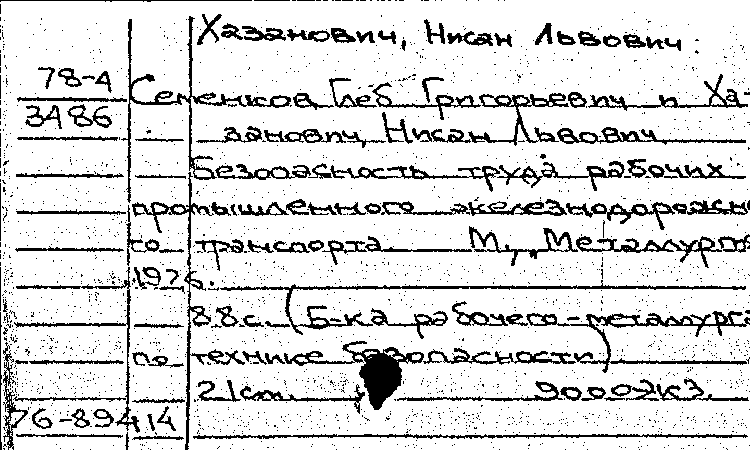 Хазанович, Нисан Львович.
78-4
3486
Семенков, Глеб Григорьевич и Ха-
занович, Нисан Львович.
Безопасность труда рабочих
промышленного железнодорожно
го транспорта. М., "Металлургия
1976.
88с. (Б-ка рабочего-металлурга
по технике безопасности)
21см. 9000экз.
76-89414